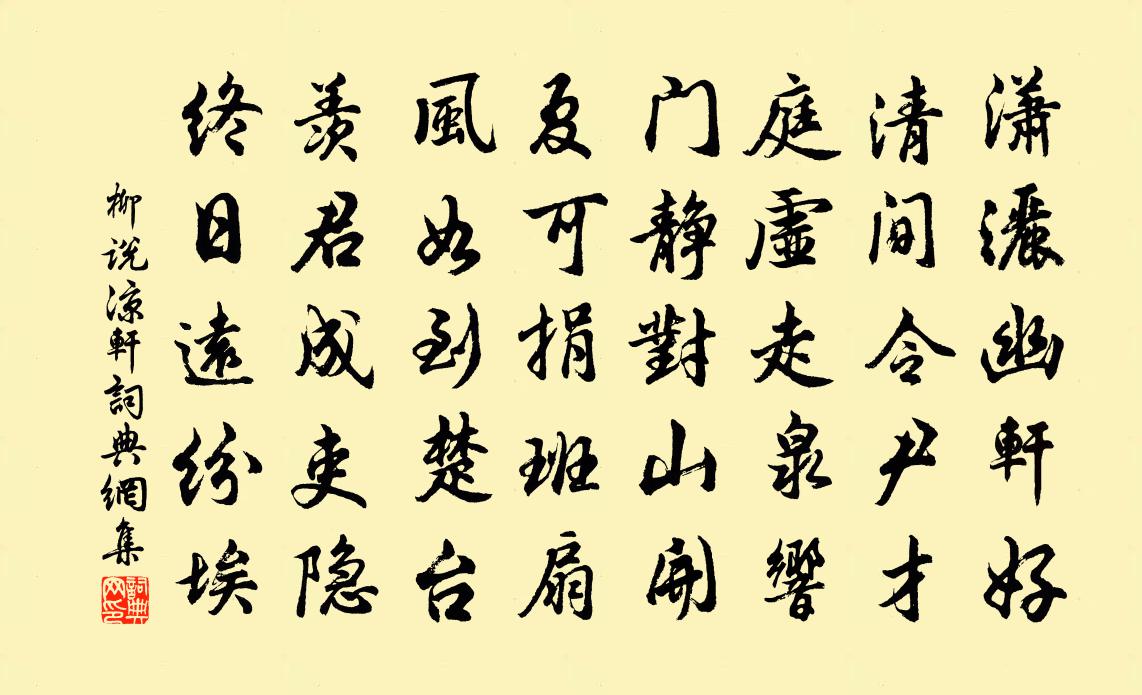 潇灑幽軒好
清间令尹才
庭虚走泉響
门静對山開
夏可捐班扇
風如到楚台
羡君成吏隐
终日遠纷埃
柳说凉軒詞典網集
詞典网印